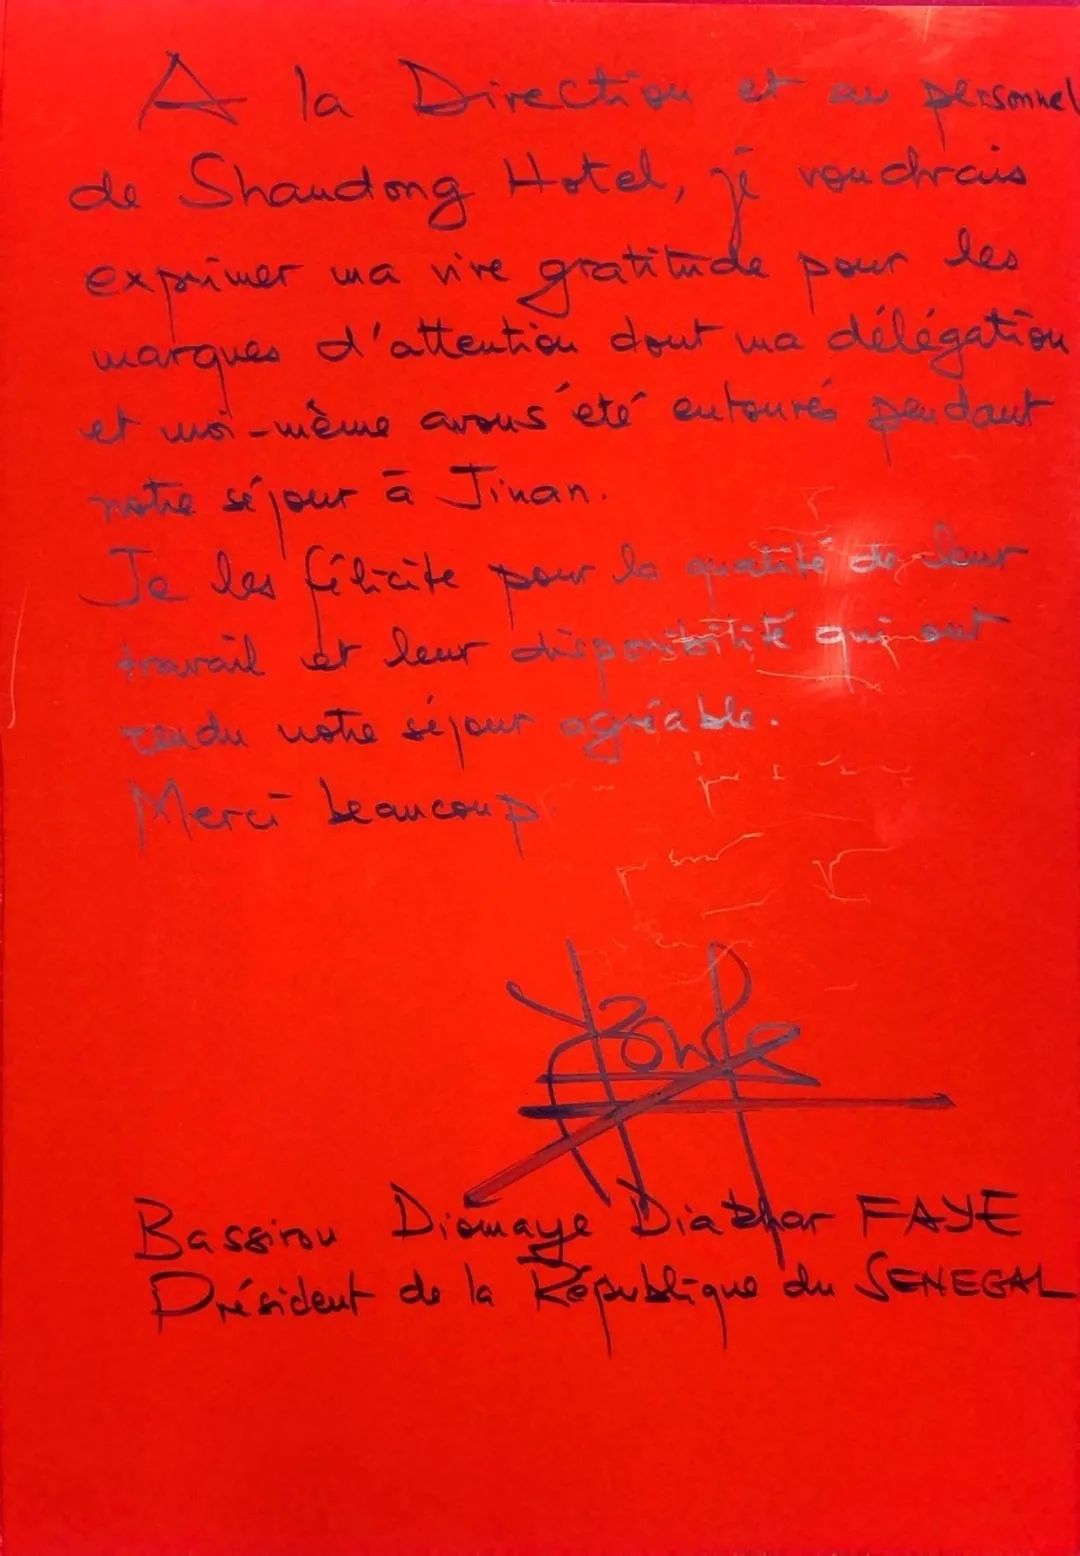 A la Direction et au personnel
de Shandong Hotel, je voudrais
exprimer ma vive gratitude pour les
marques d'attention dont ma délégation
et moi-même avons été entourés pendant
notre séjour à Jinan.
Je les félicite pour la qualité de leur
travail et leur disponibilité qui ont
rendu notre séjour agréable.
Merci beaucoup.
Bassirou Diomaye Diakhar FAYE
Président de la République du SENEGAL